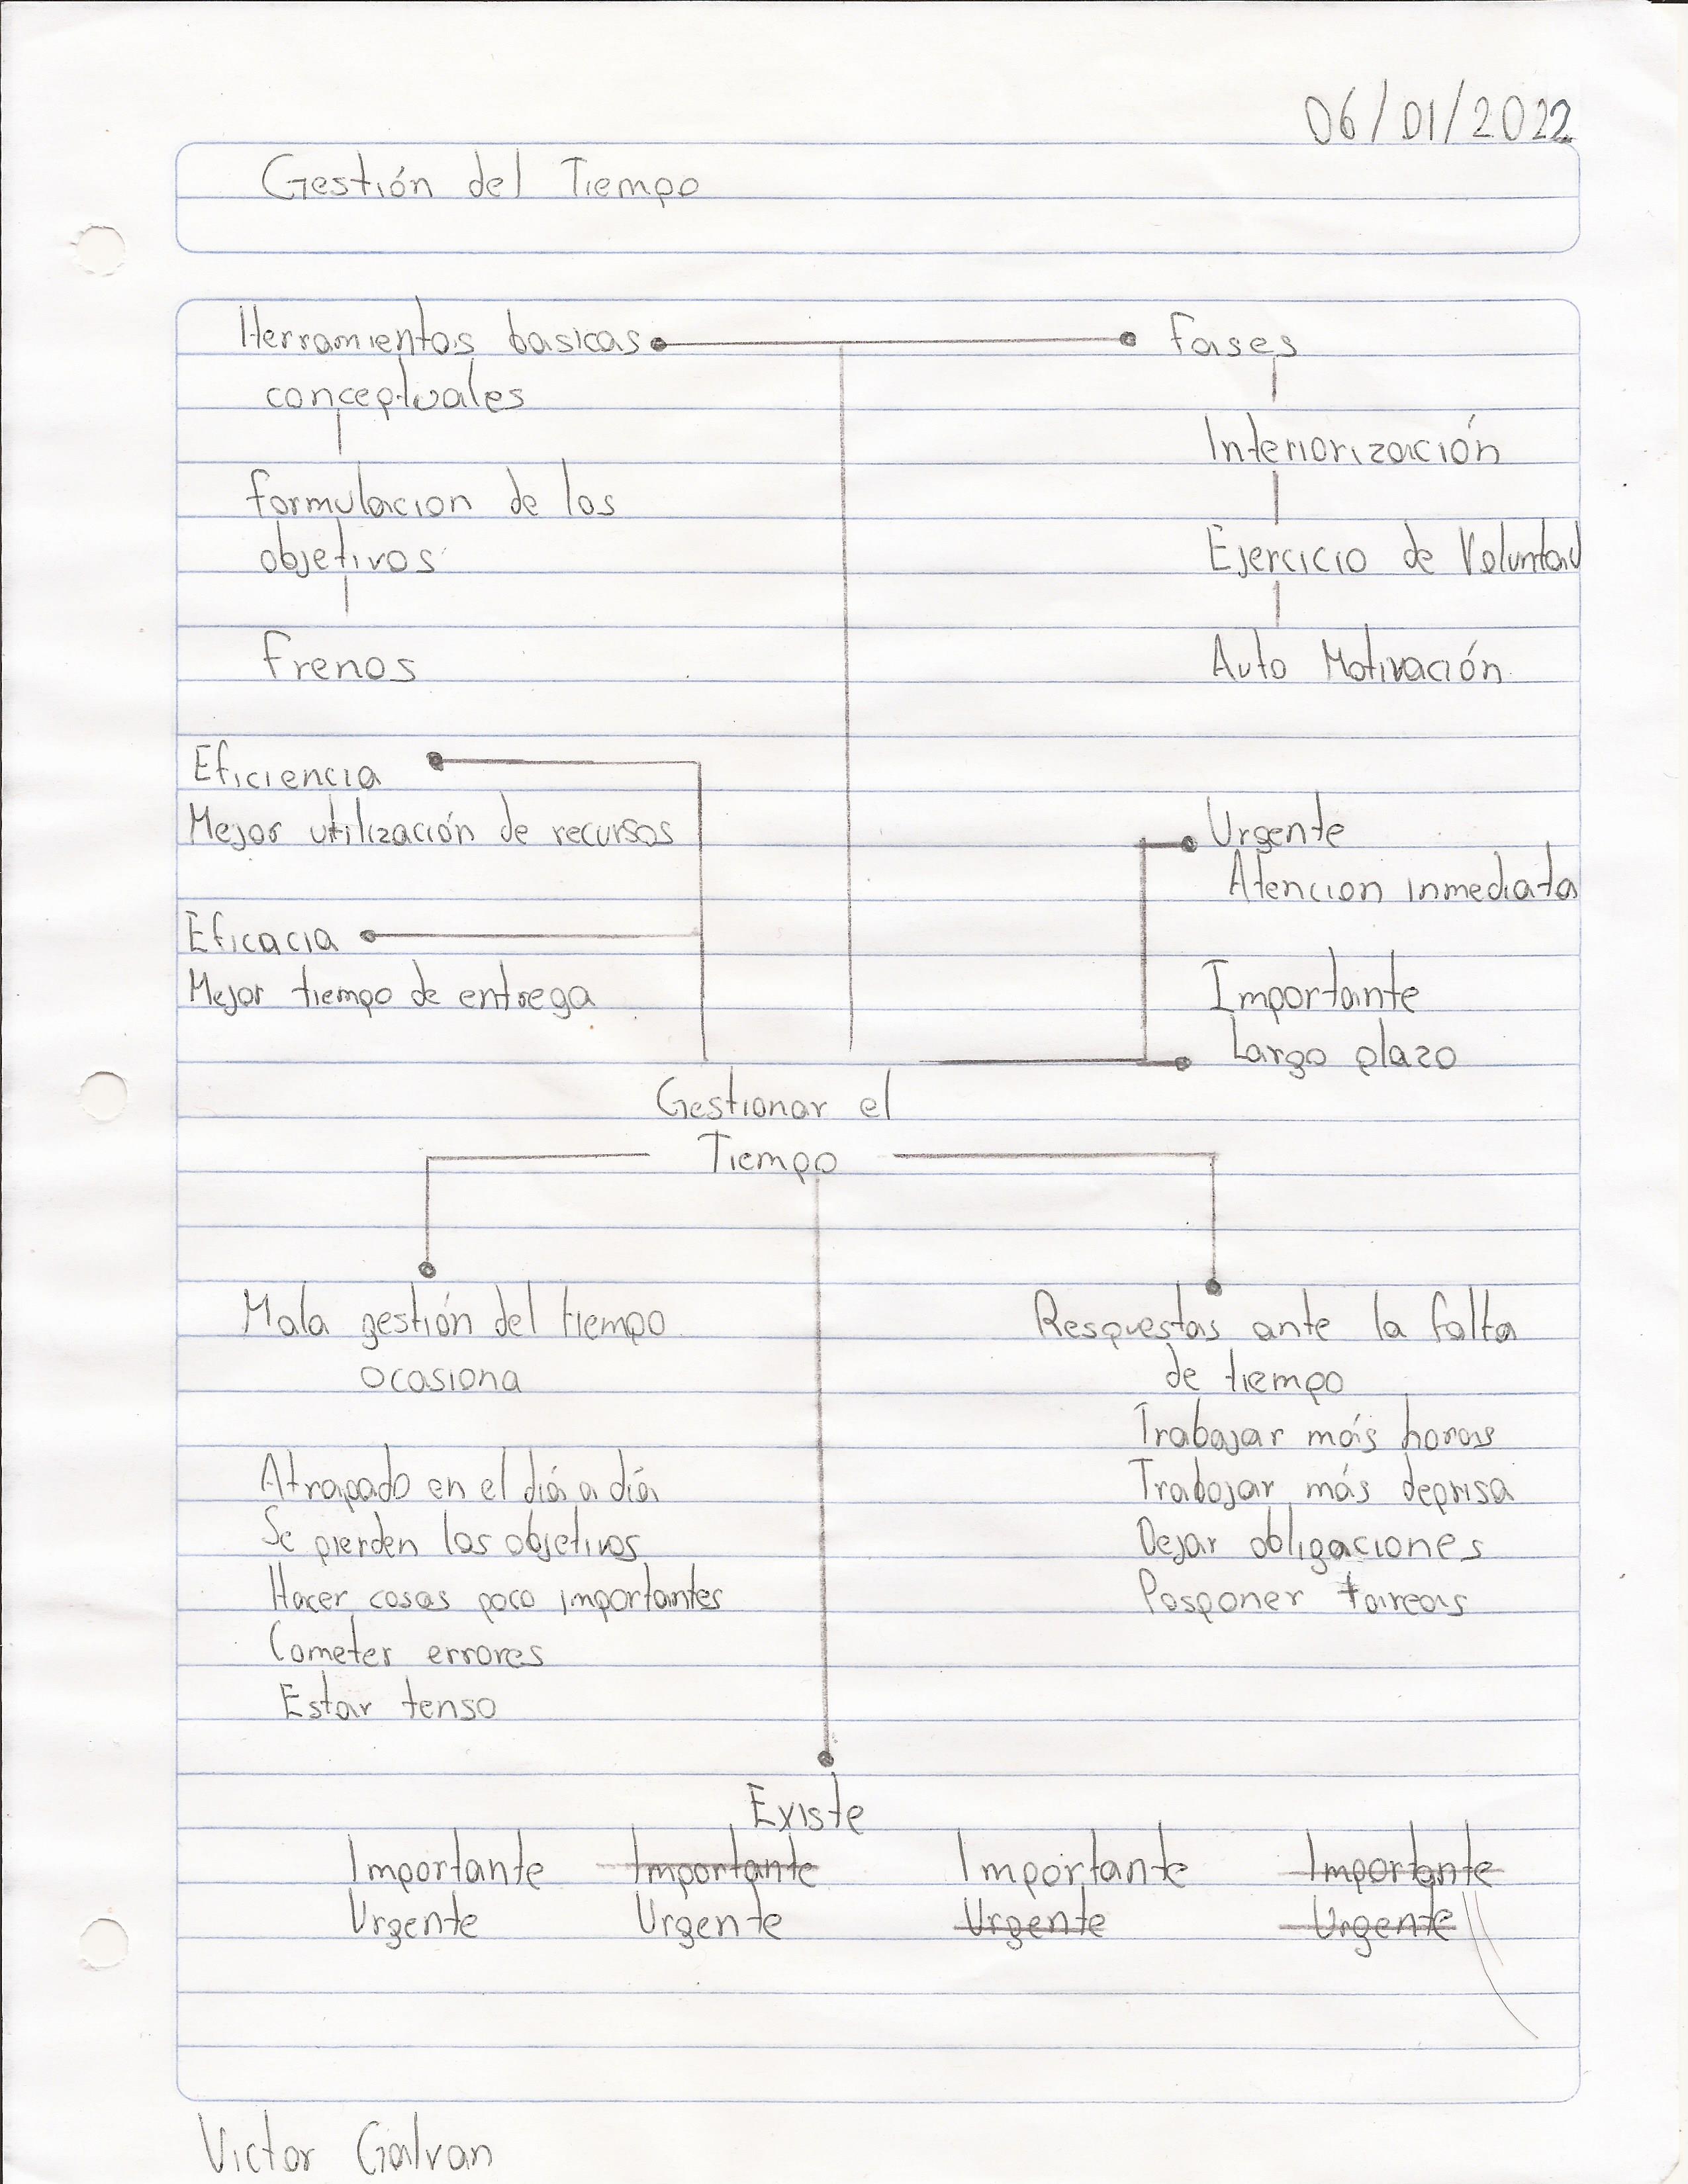 06/01/2022
Gestión del Tiempo
Herramientas basicas
conceptuales
formulacion de los
objetivos
Frenos
Fases
Interiorización
Ejercicio de Voluntad
Auto Motivación
Eficiencia
Mejor utilización de recursos
Eficacia
Mejor tiempo de entrega
Urgente
Atencion inmediata
Importante
Largo plazo
Gestionar el
Tiempo
Mala gestión del tiempo
ocasiona
Atrapado en el día a día
Se pierden los objetivos
Hacer cosas poco importantes
Cometer errores
Estar tenso
Respuestas ante la falta
de tiempo
Trabajar más horas
Trabajar más deprisa
Dejar obligaciones
Posponer tareas
Existe
Importante Importante Importante Importante
Urgente Urgente Urgente Urgente
Victor Galvan